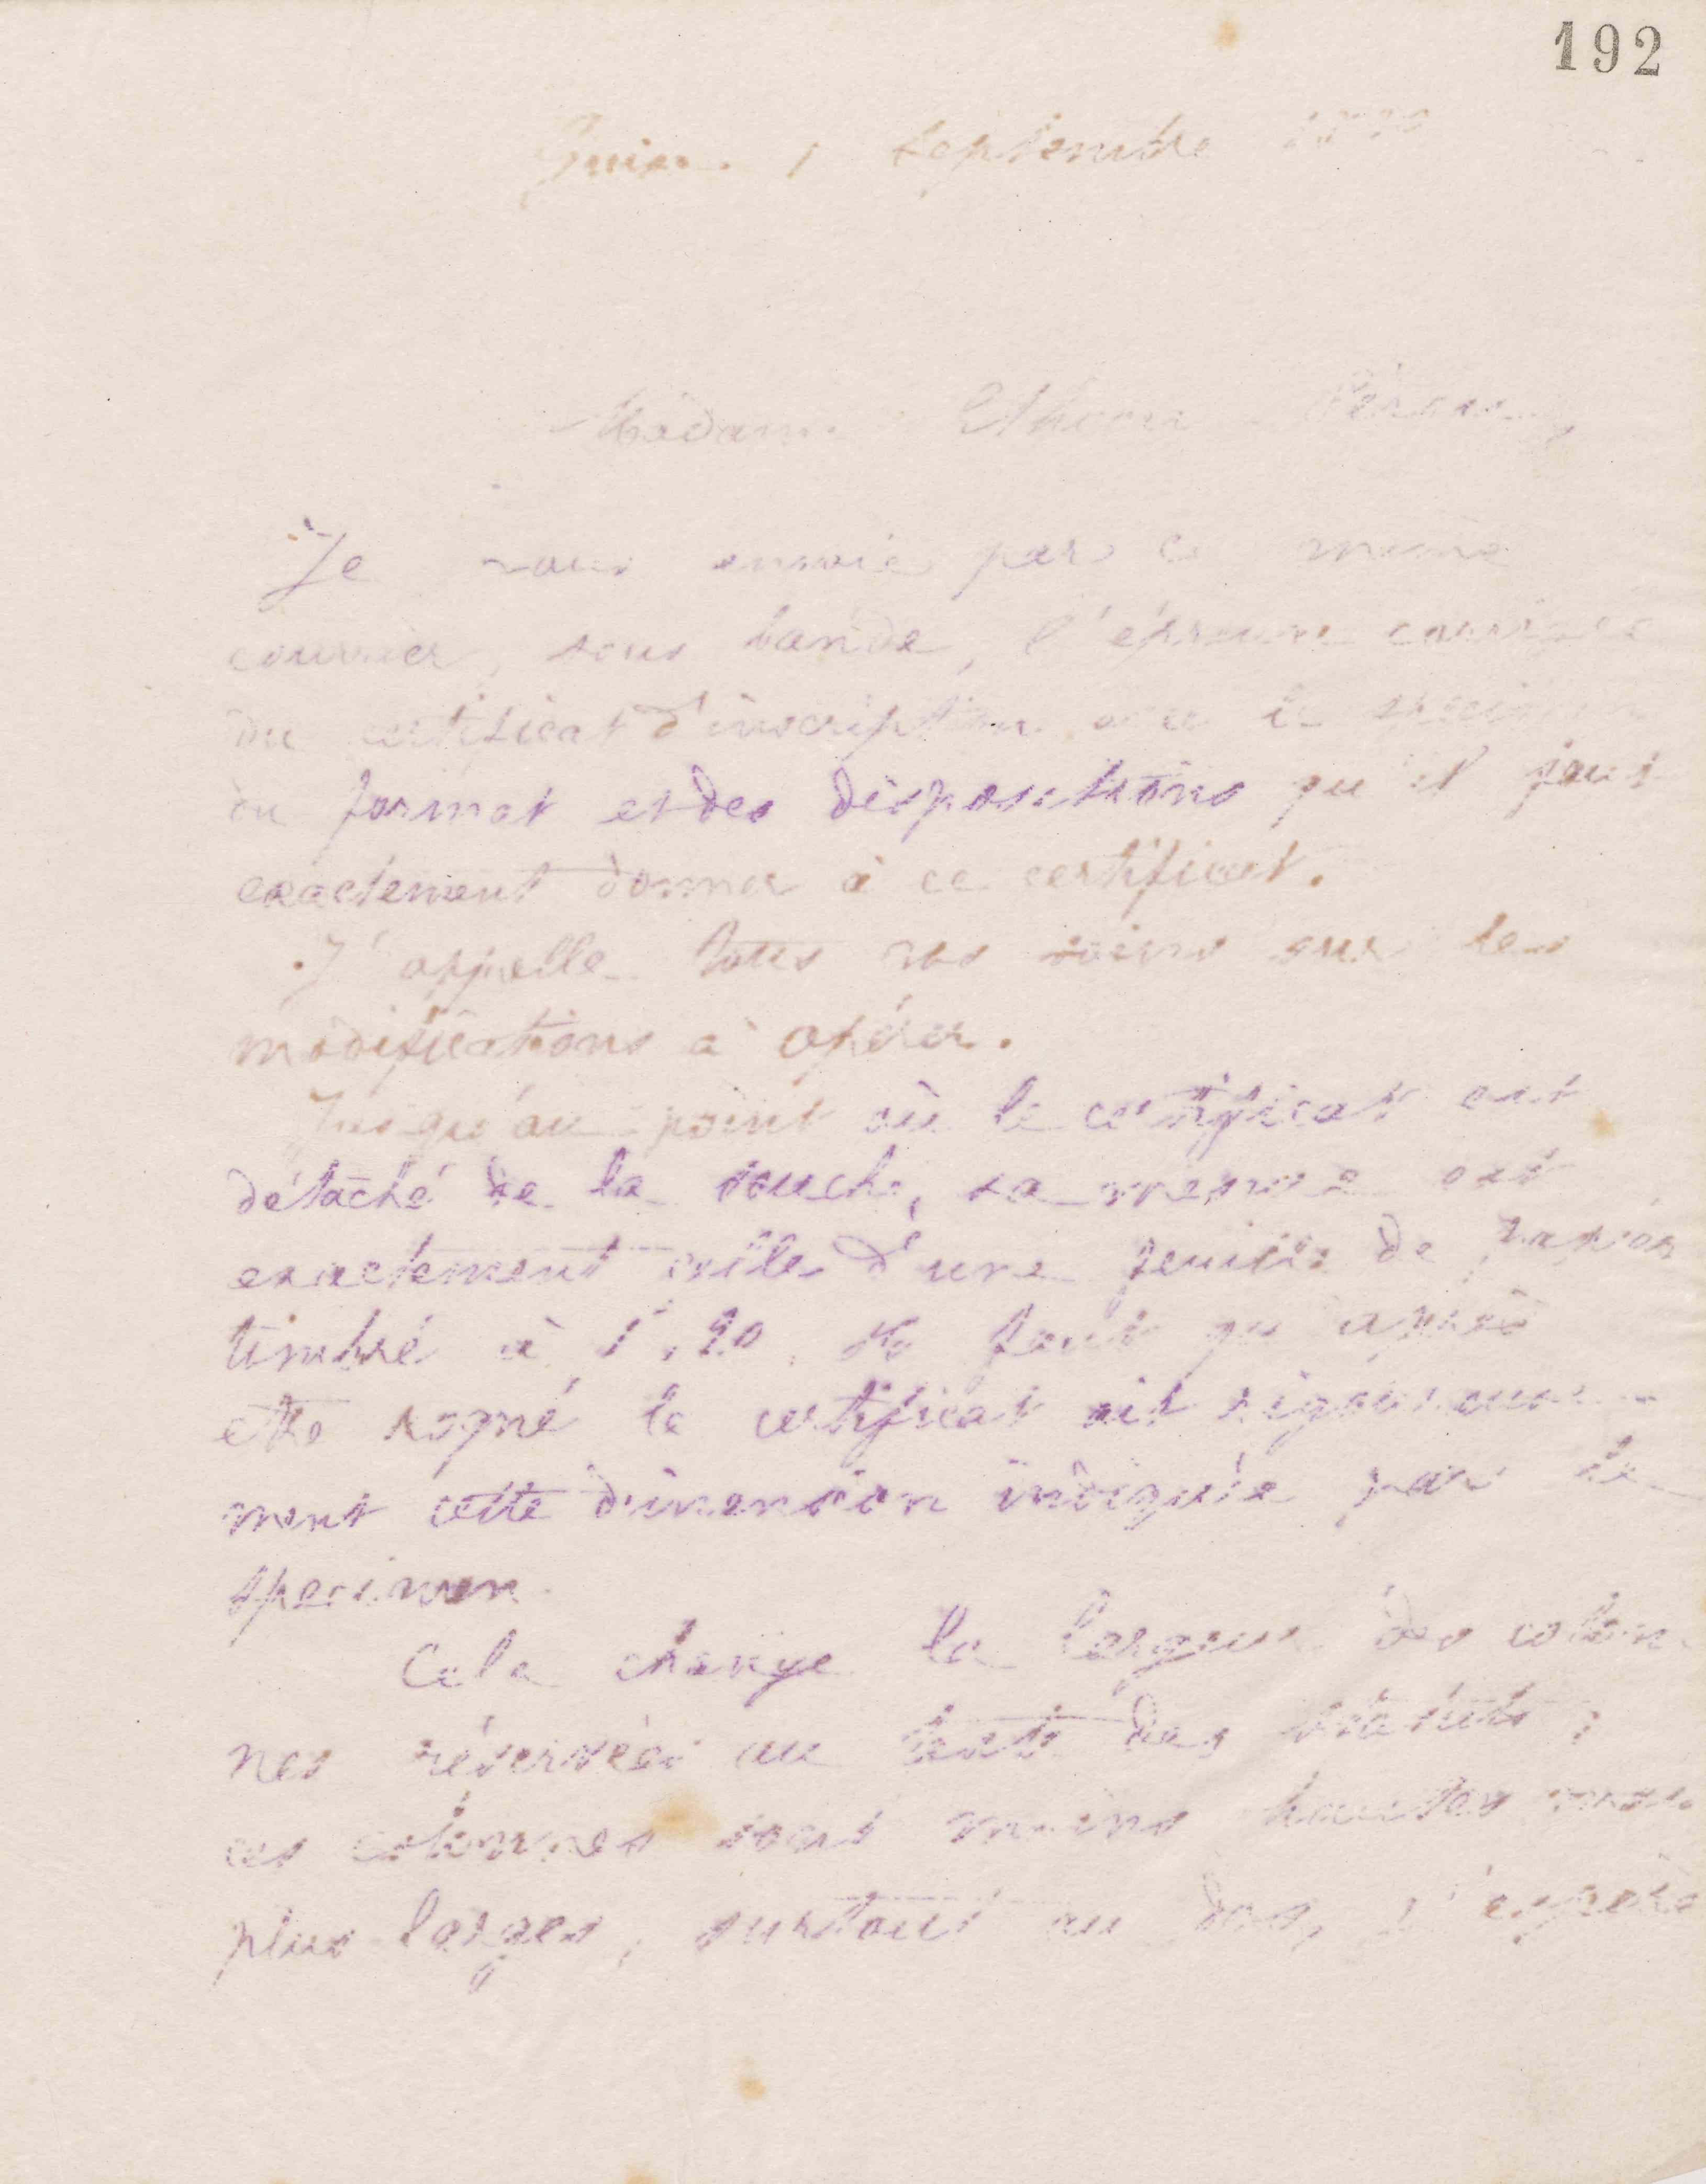 192
Guise, 1 septembre
Madame
Je vous envoie par ce même
courrier, sous bande, l'épreuve corrigée
du certificat d'inscription avec le specimen
du format et des dispositions qu'il faut
exactement donner à ce certificat.
J'appelle tous vos soins sur les
modifications à opérer.
Jusqu'au point où le certificat est
détaché de la souche, sa mesure est
exactement celle d'une feuille de papier
timbré à 1f,20. Il faut qu'après
être rogné le certificat ait rigoureuse-
ment cette dimension indiquée par le
specimen.
Cela change la largeur des colon-
nes réservées au texte des statuts ;
ces colonnes sont moins hautes mais
plus larges, surtout au dos, j'espère